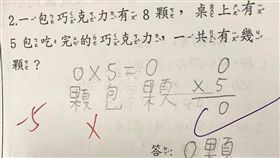 2.一包巧克力有8顆，桌上有
5包吃完的巧克力，一共有幾
顆？
0×5=0 0
顆 包 顆 ×5
0
-5
答：0顆